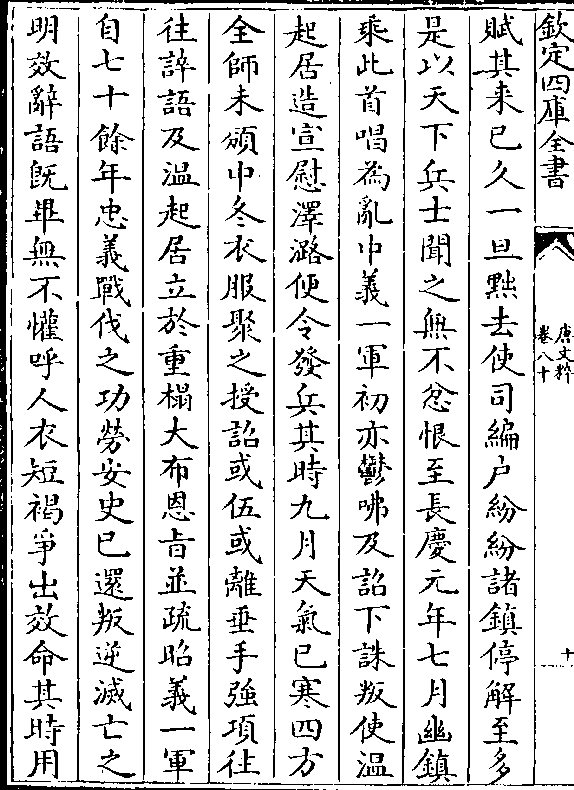 欽定四庫全書
唐文粹
卷八十
十
賦其来已久一旦㸃去使司編户紛紛諸鎮停解至多
是以天下兵士聞之無不忿恨至長慶元年七月幽鎮
乘此首唱為亂中義一軍初亦鬱咈及詔下誅叛使温
起居造宣慰澤潞便令發兵其時九月天氣已寒四方
全師未頒中冬衣服聚之授詔或伍或離垂手強項往
往誶語及温起居立於重榻大布恩㫖並疏昭義一軍
自七十餘年忠義戰伐之功勞安史已還叛逆滅亡之
明效辭語既畢無不懽呼人衣短褐爭出效命其時用